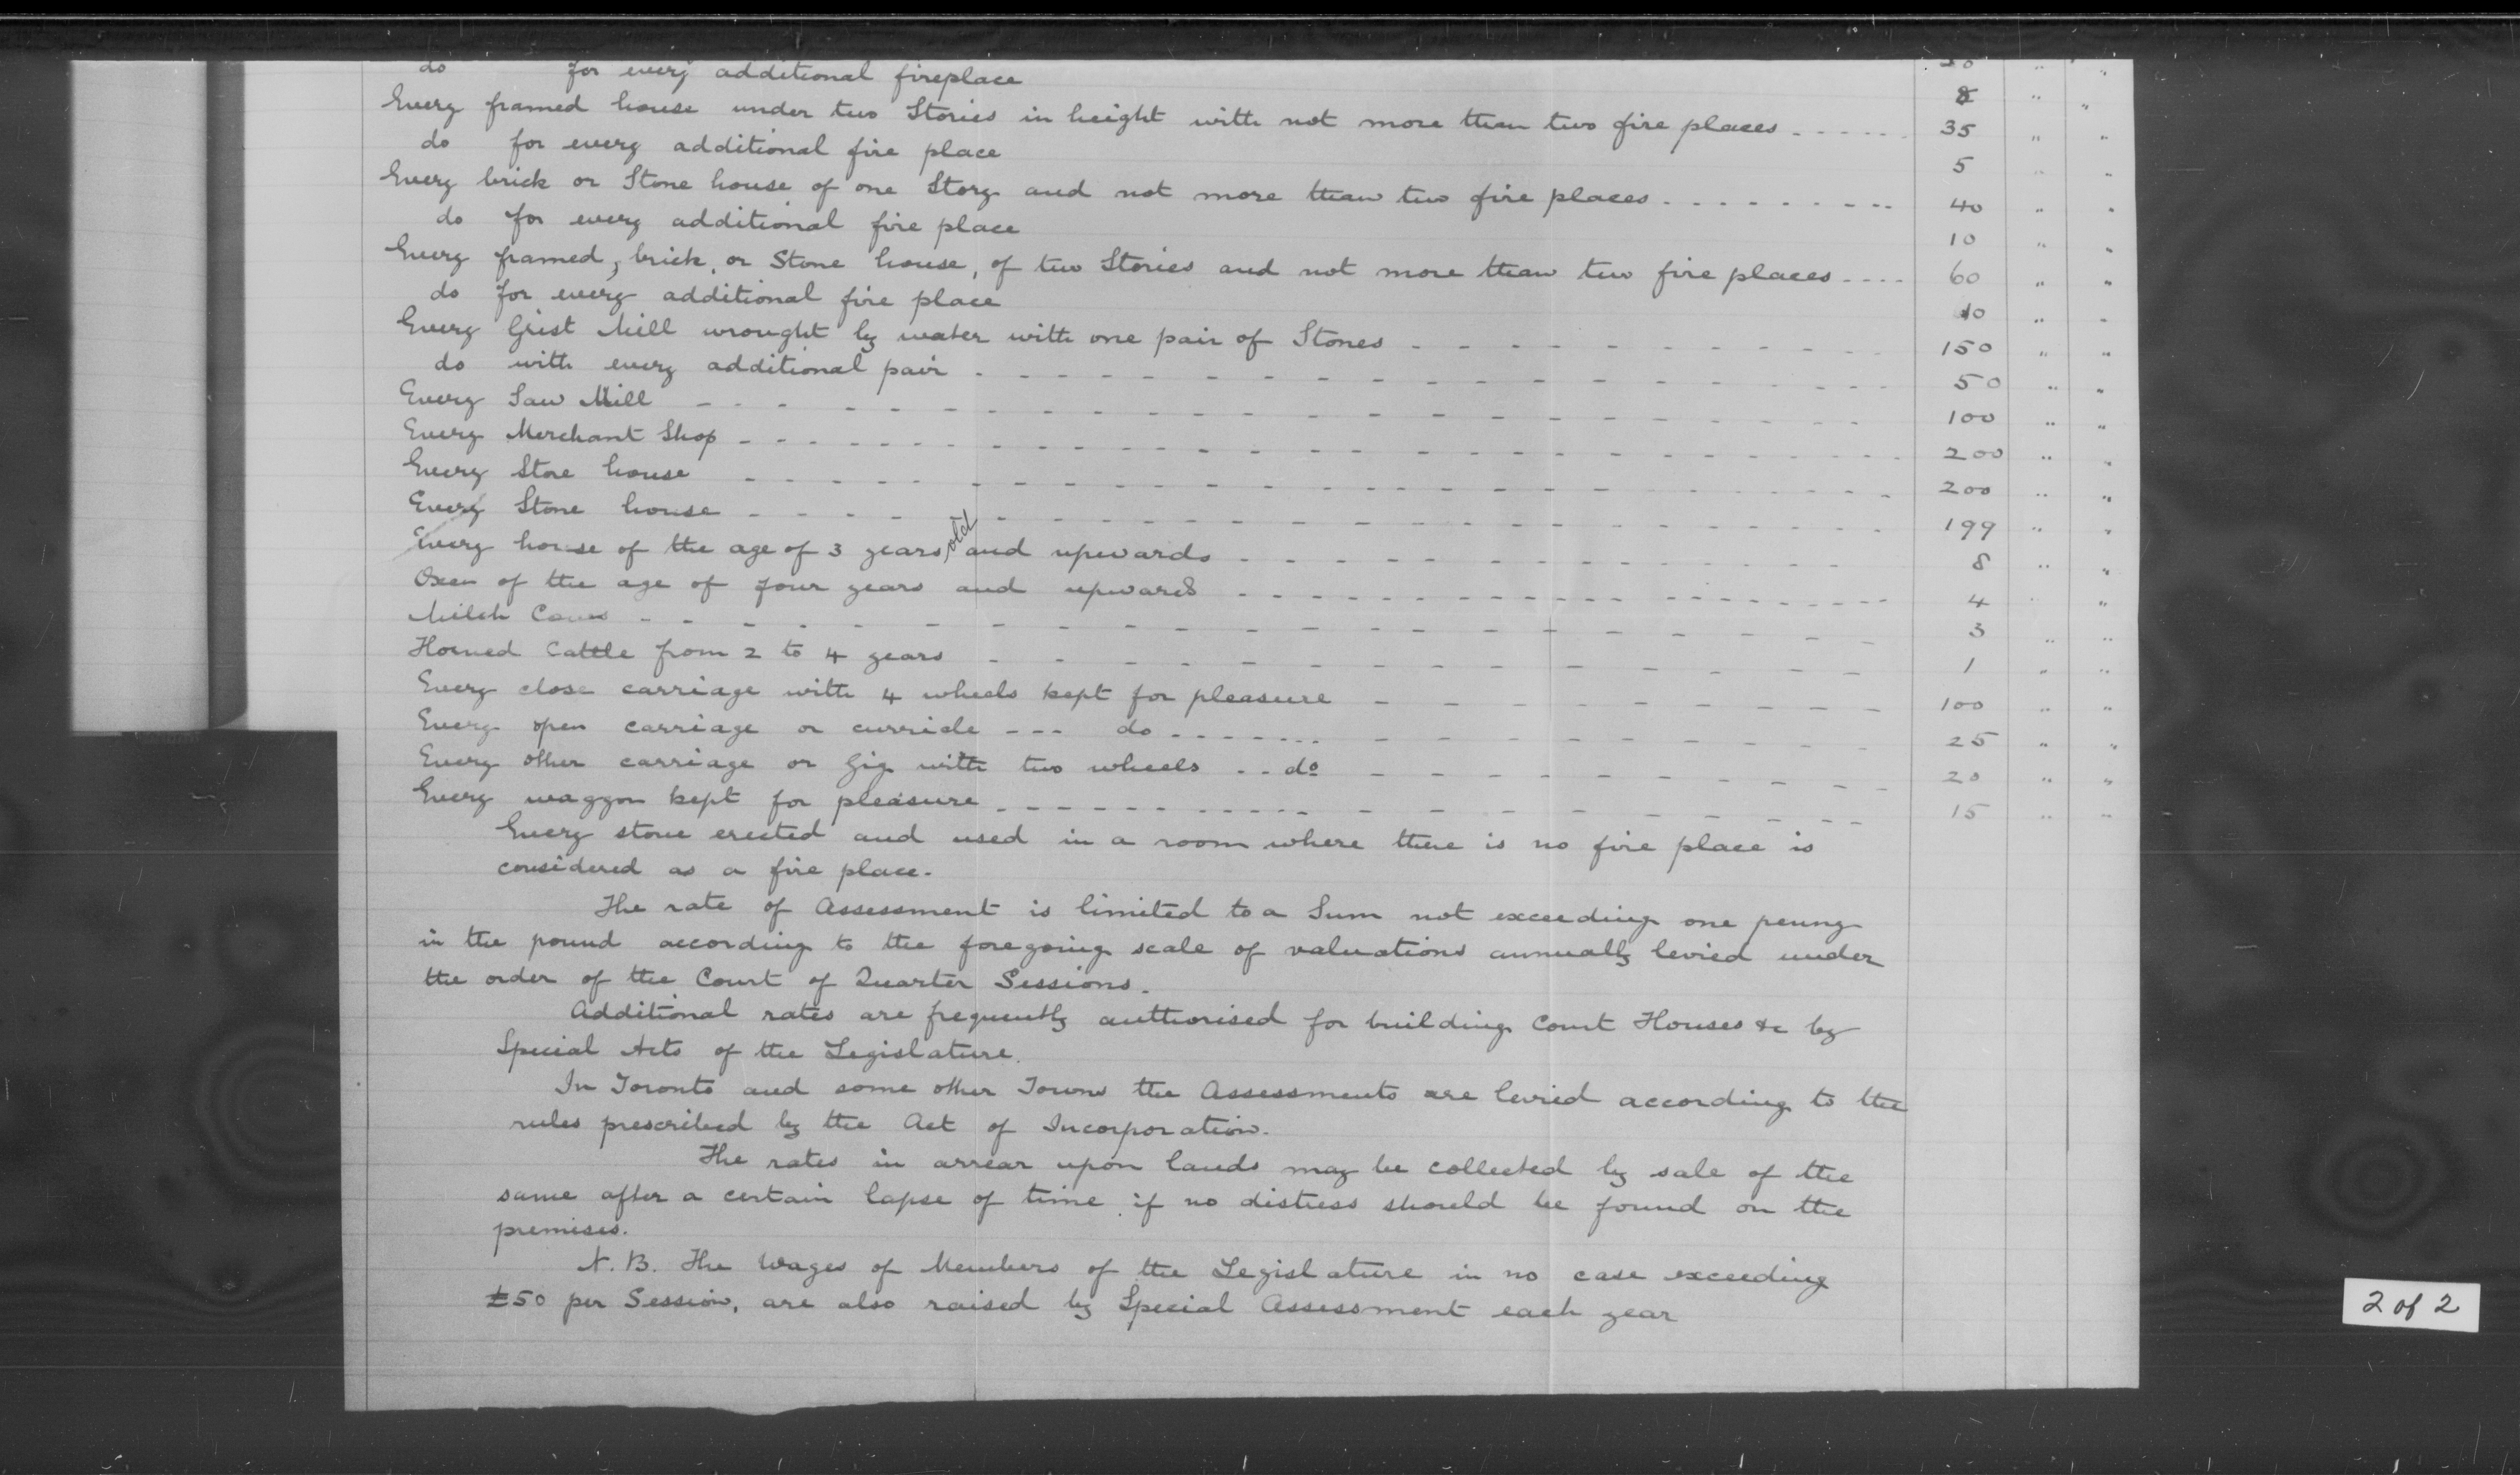 do for every additional fireplace 20 " "
8 " "
Every framed house under two Stories in height with not more than two fire places ------ 35 " "
do for every additional fire place 5 " "
Every brick or Stone house of one Story and not more than two fire places --------- 40 " "
do for every additional fire place 10 " "
Every framed, brick, or Stone house, of two Stories and not more than two fire places ---- 60 " "
do for every additional fire place 10 " "
Every Grist Mill wrought by water with one pair of Stones - - - - - - - - 150 " "
do with every additional pair - - - - - - - - - - - - 50 " "
Every Saw Mill - - - - - - - - - - - - - - - 100 " "
Every Merchant Shop - - - - - - - - - - - - - - - 200 " "
Every Store house - - - - - - - - - - - - - - - 200 " "
Every Stone house - - - - - - - - - - - - - - - 199 " "
Every horse of the age of 3 years old and upwards - - - - - - - - - - 8 " "
Oxen of the age of four years and upwards - - - - - - - - - - 4 "
Milch Cows - - - - - - - - - - - - - - - 3 " "
Horned Cattle from 2 to 4 years - - - - - - - - - - - - 1 " "
Every close carriage with 4 wheels kept for pleasure - - - - - - - - 100 " "
Every open carriage or curricle --- do - - - - - - - - - - 25 " "
Every other carriage or Gig with two wheels -- do - - - - - - - - 20 " "
Every waggon kept for pleasure - - - - - - - - - - - - 15 " "
Every stove erected and used in a room where there is no fire place is
considered as a fire place.
The rate of Assessment is limited to a Sum not exceeding one penny
in the pound according to the foregoing scale of valuations annually levied under
the order of the Court of Quarter Sessions.
Additional rates are frequently authorised for building Court Houses &c by
Special Acts of the Legislature.
In Toronto and some other Towns the Assessments are levied according to the
rules prescribed by the Act of Incorporation.
The rates in arrear upon lands may be collected by sale of the
same after a certain lapse of time if no distress should be found on the
premises.
N.B. The Wages of Members of the Legislature in no case exceeding
£50 per Session, are also raised by Special Assessment each year
2 of 2